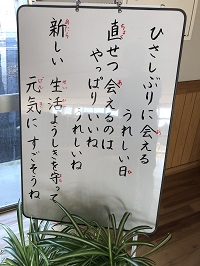 ひさしぶりに会える
うれしい日
直せつ会えるのは
やっぱり いいね
うれしいね
新しい 生活ようしきを守って
元気に すごそうね